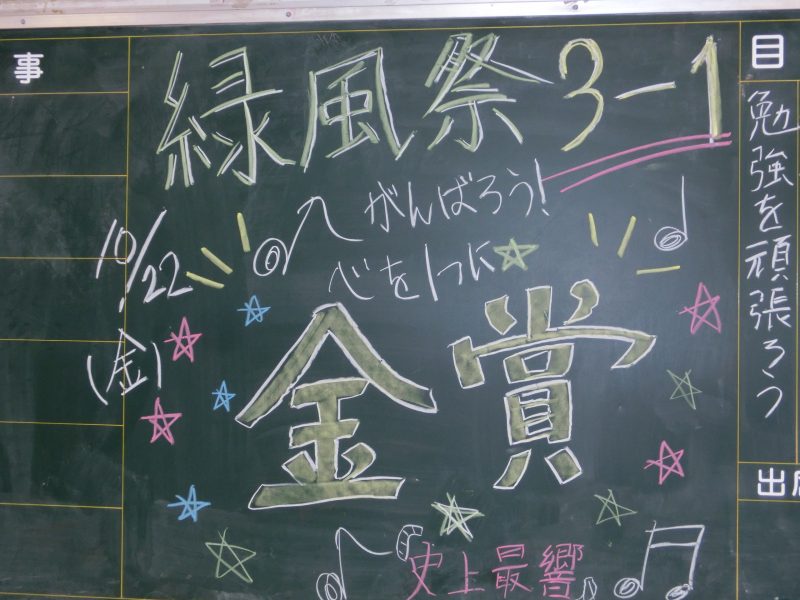 事
緑風祭3-1
がんばろう!
心を1つに
10/22
(金)
金賞
史上最響
目
勉強を頑張ろう
出